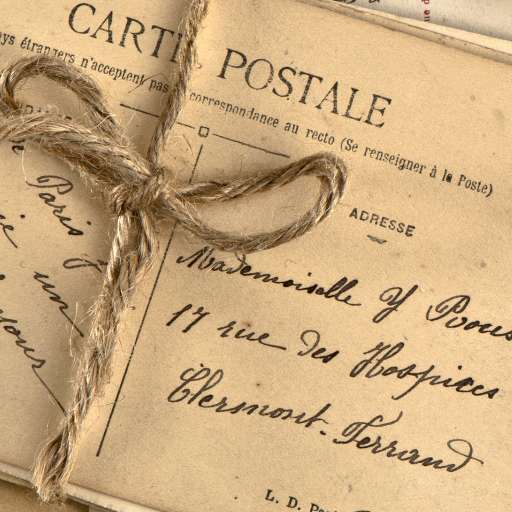 CARTE POSTALE
pays étrangers n'acceptent pas correspondance au recto (Se renseigner à la Poste)
ADRESSE
Paris
un
Mademoiselle Y
17 rue des Hospices
Clermont-Ferrand
L. D.